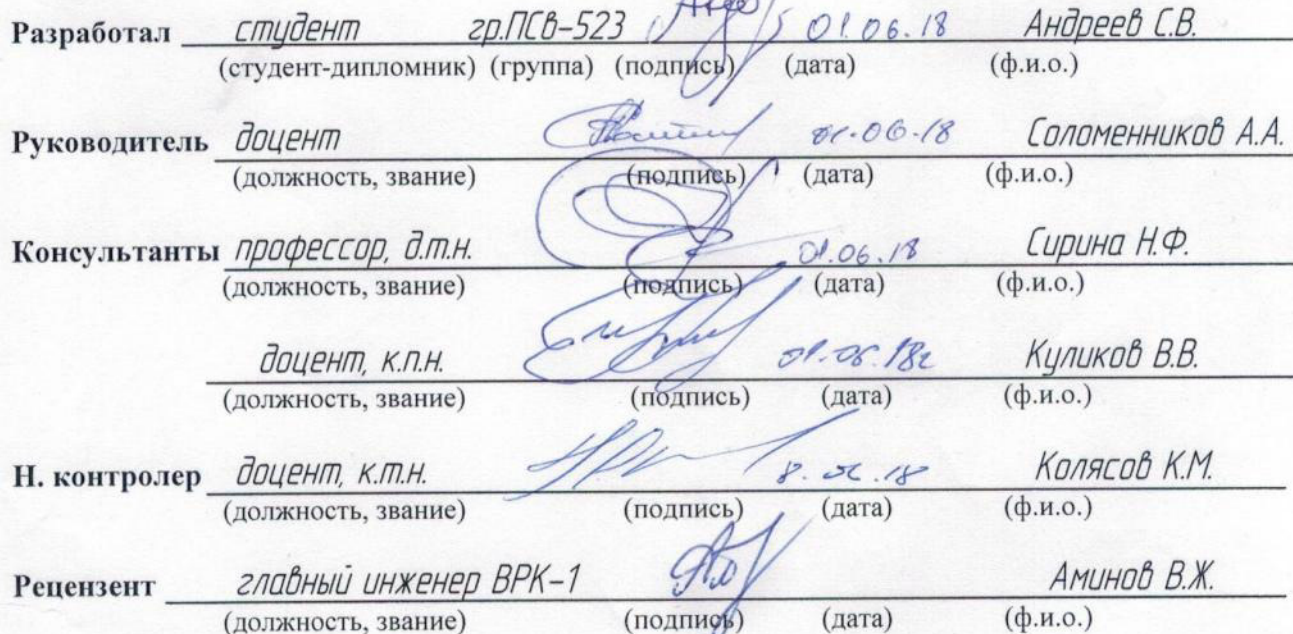 Разработал студент гр.ПСв-523 01.06.18 Андреев С.В.
(студент-дипломник) (группа) (подпись) (дата) (ф.и.о.)
Руководитель доцент 01.06.18 Соломенников А.А.
(должность, звание) (подпись) (дата) (ф.и.о.)
Консультанты профессор, д.т.н. 01.06.18 Сирина Н.Ф.
(должность, звание) (подпись) (дата) (ф.и.о.)
доцент, к.п.н. 01.06.18г Куликов В.В.
(должность, звание) (подпись) (дата) (ф.и.о.)
Н. контролер доцент, к.т.н. Колясов К.М.
(должность, звание) (подпись) (дата) (ф.и.о.)
Рецензент главный инженер ВРК-1 Аминов В.Ж.
(должность, звание) (подпись) (дата) (ф.и.о.)